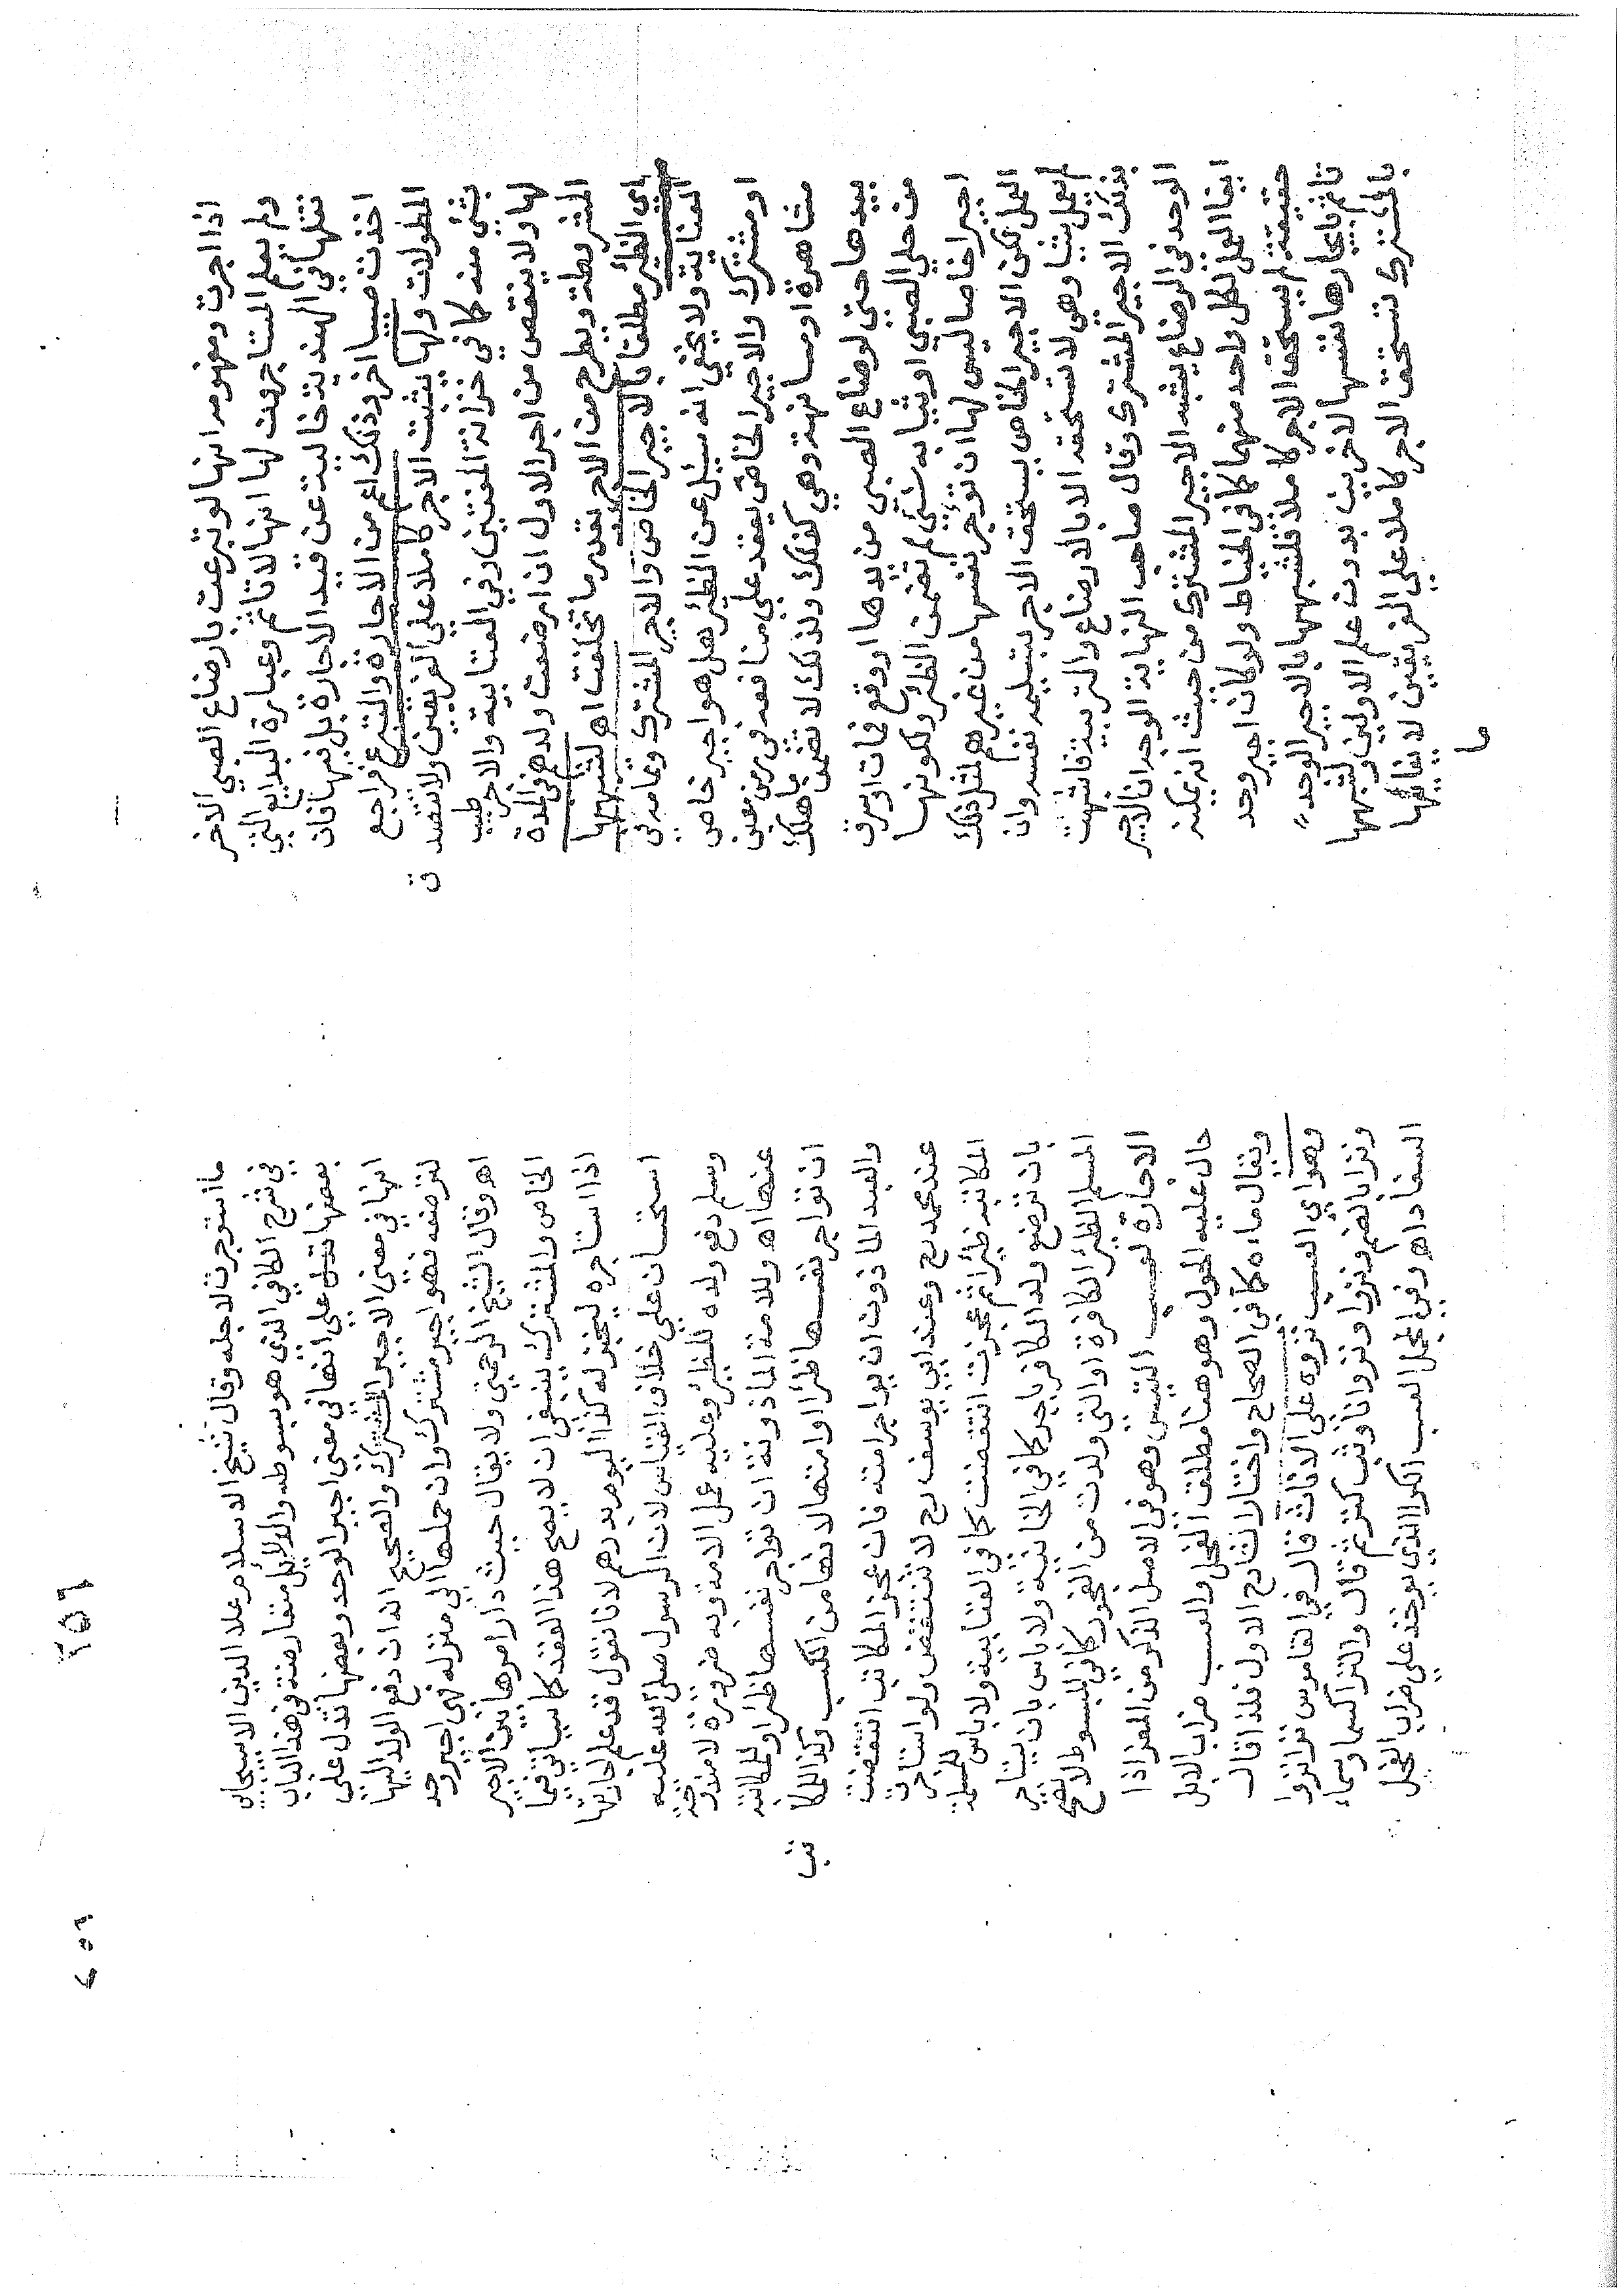 اذا اجرت ومفهومه انها لو تبرعت بارضاع الصبي الاخر
ولم يعلم المستاجرون لها انها لا تاثم وعبارة البدايع التي
نقلها في الهندية خالية عن قيد الاجارة بل فيها فان
اخذت صبيا اخر وذلك اعم من الاجارة والتبرع فراجع
المطولات ولها يثبت الاجر كاملا علي الفريقين ولا تتصدق
بشئ منه كما في خزانة المفتين وفي العتابية والاجر طيب
لها ولا ينقص من اجر الاول ان ارضعت ولدهم في المدة
المشروطة ويطرح من الاجر بقدر ما تخلفت اه لشبهها
اي الظئر مطلقا بالاجير الخاص والاجير المشترك وتمامه في
العناية ولا يخفي انه سئل عن الظئر هل هو اجير خاص
او مشترك والاجير الخاص يعقد علي منافعه في زمن معين
مشاهرة او مسانهة وهي كذلك ولذلك لا تضمن ما هلك
بيدها حتي لو ضاع الصبي من يدها او وقع فمات او سرق
من حلي الصبي او ثيابه شئ لم تضمن الظئر ولكونها
اجيرا خاصا ليس لها ان تؤجر نفسها من غيرهم لمثل ذلك
العمل لكن الاجير الخاص يستحق الاجر بتسليم نفسه وان
لم يعمل شيا وهي لا تستحقه الا بالارضاع والتربية فاشبهت
بذلك الاجير المشترك وقال صاحب النهاية الوجه ان الاجير
الوحد في الرضاع يشبه الاجير المشترك من حيث انه يمكنه
ايفا العمل لكل واحد منهما كما في الخياط ولو كان اجير وحد
حقيقة لم يستحق الاجر كاملا فلشبهها بالاجير الوحد
تاثم بايجارها نفسها لاخرين بدون علم الاولين ولشبهها
بالمشترك تستحق الاجر كاملا علي الفريقين لايفائها
ما
٢٥٦
ما استوجرت لاجله وقال شيخ الاسلام علا الدين الاسبيجابي
في شرح الكافي الذي هو مبسوطه والدلايل متعارضة في هذا الباب
بعضها تدل علي انها في معني اجير الوحد وبعضها تدل علي
انها في معني الاجير المشترك والصحيح انه ان دفع الولد اليها
لترضعه فهو اجير مشترك وان حملها الي منزله فهي اجير وحد
اه وقال الشيخ الرحمتي ولا يقال حيث دار امرها بين الاجير
الخاص والمشترك ينبغي ان لا يصح هذا العقد كما سياتي فيما
اذا استاجره ليخبز له كذا اليوم بدرهم لانا نقول قد علم انها
استحسان علي خلاف القياس لان الرسول صلي الله عليه
وسلم دفع ولده للظئر وعليه عمل الامة وبه ضرورة لا مندوحة
عنها اه وللامة الماذونة ان تواجر نفسها ظئرا وللمكاتبة
ان تواجر نفسها ظئرا او امتها لانها من الكسب وكذا للمكاتب
والعبد الماذون ان يواجر امته فان عجز المكاتب انتقضت
عند محمد رح وعند ابي يوسف رح لا تنتقض ولو استاجرت
المكاتبة ظئرا ثم عجزت انتقضت كما في العتابية ولا باس للمسلمة
بان ترضع ولد الكافر باجر كما في الخانية ولا باس بان يستاجر
المسلم الظئر الكافرة او التي ولدت من الفجور كما في المبسوط لا تصح
الاجارة لعسب التيس وهو في الاصل الذكر من المعز اذا
حال عليه الحول وهو هنا مطلق الفحل والعسب ضراب الابل
ويقال ماءه كما في الصحاح واختار الشارح الاول فلذا قال
وهو اي العسب نزوه علي الاناث قال في القاموس نزا نزوا
ونزا بالضم ونزوا ونزوانا وثب كنزي ثم قال والنزا كسما وسماء
السفاد اه وفي المجمل العسب الكرا الذي يوخذ علي ضراب الفحل
٢٥٦